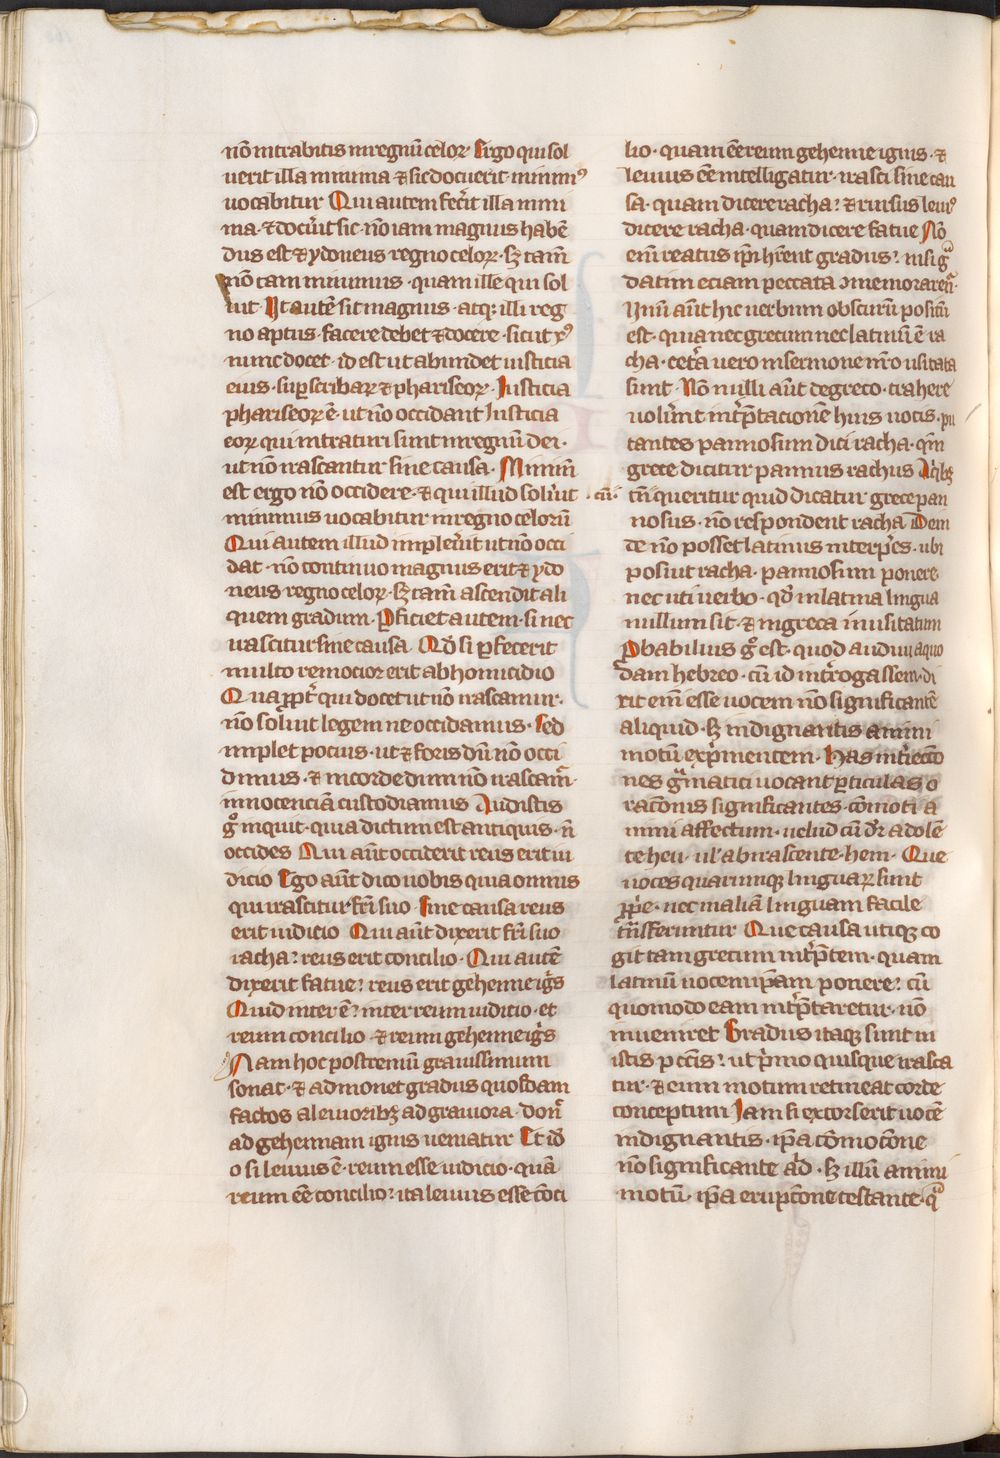 nō intrabitis in regnū celoꝝ· Ergo qui sol
uerit illa minima ⁊ sic docuerit· minimꝰ
uocabitur Qui autem fec̄it illa mini
ma· ⁊ docūit sic· nō iam magnus habē
dus est ⁊ ydoneus regno celoꝝ· sꝫ tam̄
nō tam minimus· quam ille qui sol
uit· Ut autē sit magnus· atqꝫ illi reg
no aptus· facere debet ⁊ docere· sicut xp̄ꝰ
nunc docet· id est ut abundet iusticia
eius· sup̄ scribaꝝ ⁊ phariseoꝝ· Iusticia
phariseoꝝ ē· ut nō occidant Iusticia
eoꝝ qui intraturi sunt in regnū dei·
ut nō irascantur sine causa· Minim̄
est ergo nō occidere· ⁊ qui illud solūit
minimus uocabitur in regno celorū
Qui autem illud impleūit ut nō occi
dat· nō continuo magnus erit ⁊ ydo
neus regno celoꝝ· sꝫ tam̄ ascendit ali
quem gradum· ꝓficiet autem· si nec
irascitur sine causa· Qd̄ si ꝑfecerit
multo remocior erit ab homicidio
Quaꝓpt̄ qui docet ut nō irascamur·
nō soluit legem ne occidamus· Sed
implet pocius· ut ⁊ foris dū nō occi
dimus· ⁊ in corde dum nō irascam̄·
innocenciā custodiamus Audistis
gͦ inquit· quia dictum est antiquis· n̄
occides Qui aūt occiderit reus erit iu
dicio Ego aūt dico uobis quia omnis
qui irascitur fr̄i suo· sine causa reus
erit iudicio Qui aūt dixerit fr̄i suo
racha: reus erit concilio· Qui autē
dixerit fatue: reus erit gehenne iḡs
Quid inter ē: inter reum iudicio· et
reum concilio ⁊ reum gehenne iḡs
Nam hoc postremū grauissimum
sonat· ⁊ admonet gradus quosdam
factos a leuioribꝫ ad grauiora· don̄
ad gehennam ignis ueniatur Et id̄
o si leuius ē· reum esse iudicio· quā
reum eē concilio: ita leuius esse cōci
lio· quam eē reum gehenne ignis· ⁊
leuius eē intelligatur· irasci sine cau
sa· quam dicere racha: ⁊ rursus leuiꝰ
dicere racha· quam dicere fatue Nō
em̄ reatus ip̄i hr̄ent gradus: nisi gͣ
datim eciam peccata ꝯmemorarent̄·
Unū aūt hic uerbum obscurū positū
est· quia nec grecum nec latinū ē ra
cha· cet̄a uero in sermone nr̄o usitata
sunt· Nō nulli aūt de greco· trahere
uolūnt int̄p̄tacionē huius uocis· pu
tantes pannosum dici racha· qm̄
grece dicitur pannus rachus A qͥbꝫ
·cū· cū queritur quid dicatur grece pan
nosus· nō respondent racha Dein
de nō posset latinus interp̄es· ubi
posuit racha· pannosum ponere
nec uti uerbo· qd̄ in latina lingua
nullum sit· ⁊ in greca inusitatum
ꝓbabilius gͦ est· quod audiui a quo
dam hebreo· cū id int̄rogassem· di
xit em̄ esse uocem nō significantē
aliquid· sꝫ indignantis animi
motū exp̄mentem· Has int̄iectō
nes gͣmatici uocant ꝑticulas o
racōnis significantes· cōmoti a
nimi affectum· uelud cū dr̄ a dolē
te heu· ul' ab irascente· hem· Que
uoces quarumqꝫ linguaꝝ sunt
ꝓp̄e· nec in aliā linguam facile
tn̄sferuntur Que causa utiqꝫ co
git tam grecum int̄p̄tem· quam
latinū uocem ip̄am ponere: cū
quomodo eam int̄p̄taretur· nō
inueniret Gradus itaqꝫ sunt in
istis pctīs: ut p̄mo quisque irasca
tur· ⁊ eum motum retineat corde
conceptum Iam si extorserit uocē
indignantis· ip̄a cōmocōne
nō significante ad· sꝫ illū animi
motū· ip̄a erupcōne testante· qͣ